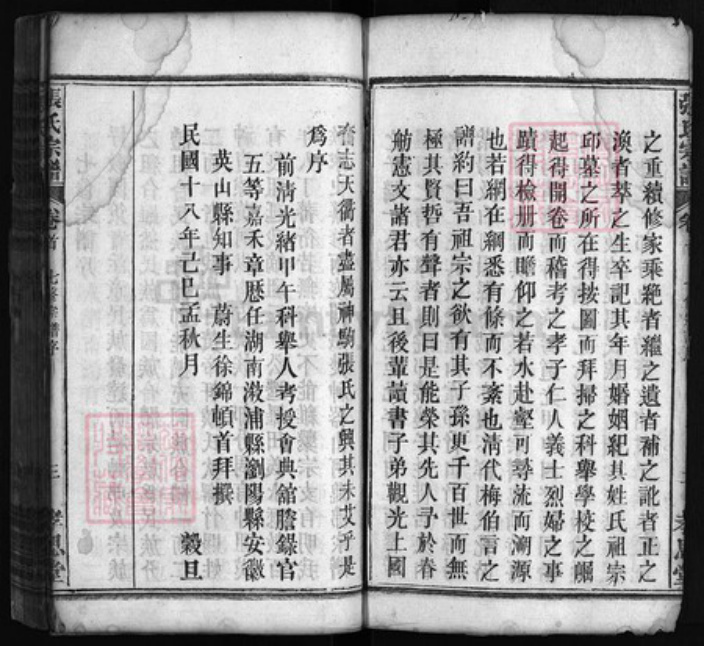 之重續修家乘絕者繼之遺者補之訛者正之
渙者萃之生卒記其年月婚姻紀其姓氏祖宗
邱墓之所在得按圖而拜掃之科舉學校之崛
起得開卷而稽考之孝子仁人義士烈婦之事
蹟得檢册而瞻仰之若水赴壑可尋流而溯源
也若網在綱悉有條而不紊也清代梅伯言之
譜約曰吾祖宗之欲有其子孫更千百世而無
極其賢哲有聲者則曰是能榮其先人予於春
舫憲文諸君亦云且後輩讀書子弟觀光上國
奮志天衢者盡屬神駒張氏之興其未艾乎是
爲序
前清光緒甲午科舉人考授會典館謄錄官
五等嘉禾章歷任湖南溆浦縣瀏陽縣安徽
英山縣知事 蔚生徐錦頓首拜撰
民國十八年己巳孟秋月 穀旦
張氏宗譜 卷首 七修宗譜序 三 孝思堂